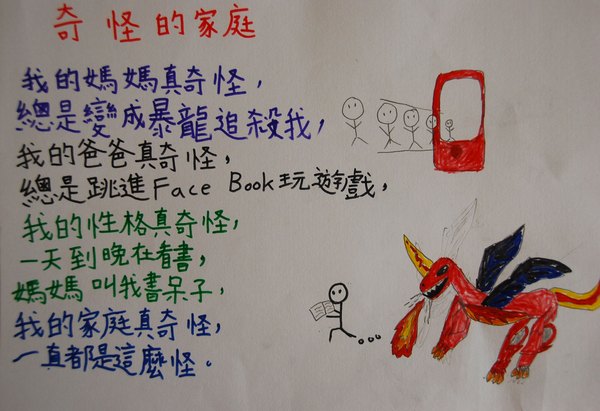 奇怪的家庭
我的媽媽真奇怪，
總是變成暴龍追殺我，
我的爸爸真奇怪，
總是跳進Face Book玩遊戲，
我的性格真奇怪，
一天到晚在看書，
媽媽叫我書呆子，
我的家庭真奇怪，
一直都是這麼怪。